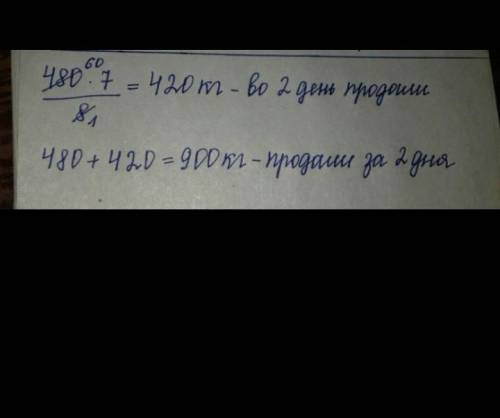 480 60 · 7 / 8 1 = 420 кг - во 2 день продали
480 + 420 = 900 кг - продали за 2 дня